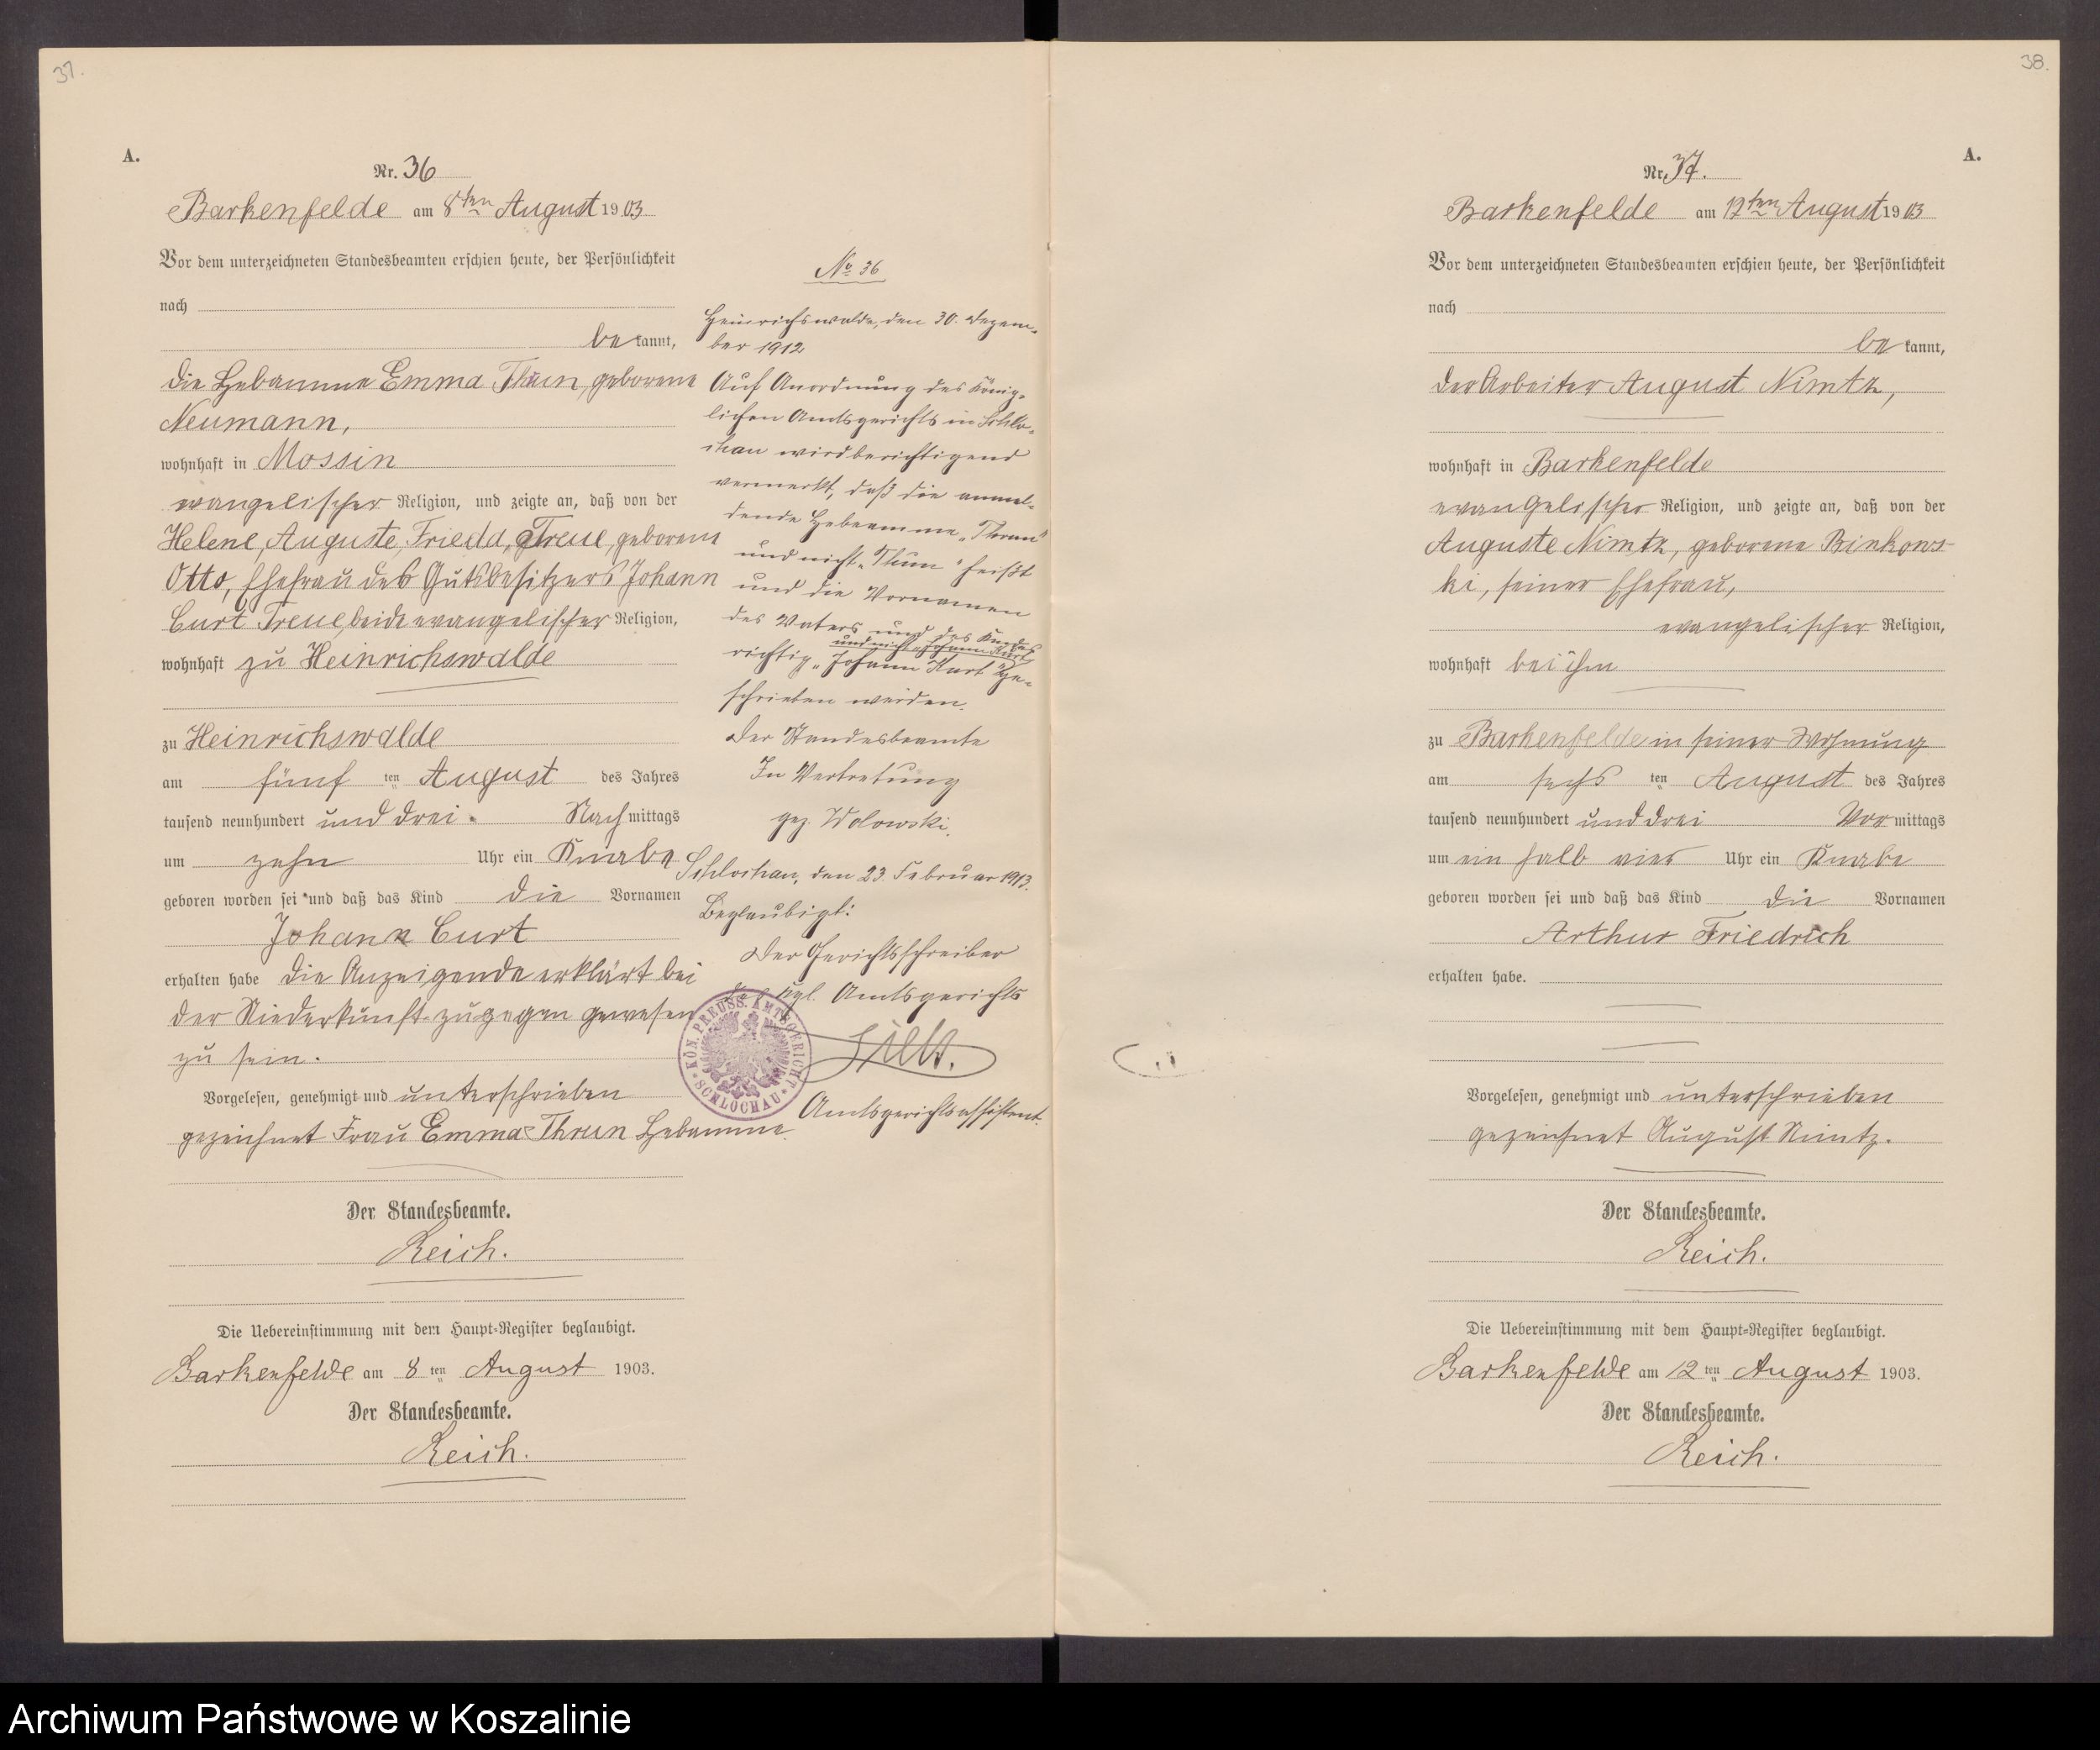 37.
A.
Nr. 36
Barkenfelde am 8ten August 1903
Vor dem unterzeichneten Standesbeamten erschien heute, der Persönlichkeit
nach
bekannt,
die Hebamme Emma Thun, geborene
Neumann,
wohnhaft in Mossin
evangelischer Religion, und zeigte an, daß von der
Helene, Auguste, Frieda, Treue, geborene
Otto, Ehefrau des Gutsbesitzers Johann
Curt Treue, beide evangelischer Religion,
wohnhaft zu Heinrichswalde
zu Heinrichswalde
am fünften August des Jahres
tausend neunhundert und drei. Nachmittags
um zehn Uhr ein Knabe
geboren worden sei und daß das Kind die Vornamen
Johann Curt
erhalten habe die Anzeigende erklärt bei
der Niederkunft zugegen gewesen
zu sein.
Vorgelesen, genehmigt und unterschrieben
gezeichnet Frau Emma Thrun Hebamme.
Der Standesbeamte.
Reich.
Die Uebereinstimmung mit dem Haupt-Register beglaubigt.
Barkenfelde am 8ten August 1903.
Der Standesbeamte.
Reich.
No 36
Heinrichswalde, den 30. Dezem-
ber 1912
Auf Anordnung des König-
lichen Amtsgerichts in Schlo-
chau wird berichtigend
vermerkt, daß die anmel-
dende Hebamme „Thrun"
und nicht „Thun" heißt
und die Vornamen
des Vaters und des Kindes
und nicht „Johann Kurt"
richtig „Johann Kurt" ge-
schrieben werden.
Der Standesbeamte
In Vertretung
gez. Wolowski.
Schlochau, den 23. Februar 1913.
Beglaubigt:
Der Gerichtsschreiber
des Kgl. Amtsgerichts
KÖN. PREUSS. AMTSGERICHT
* SCHLOCHAU *
Amtsgerichtsassistent.
38.
A.
Nr. 37.
Barkenfelde am 12ten August 1903
Vor dem unterzeichneten Standesbeamten erschien heute, der Persönlichkeit
nach
bekannt,
der Arbeiter August Nimtz,
wohnhaft in Barkenfelde
evangelischer Religion, und zeigte an, daß von der
Auguste Nimtz, geborene Binkows-
ki, seiner Ehefrau,
evangelischer Religion,
wohnhaft bei ihm
zu Barkenfelde in seiner Wohnung
am sechsten August des Jahres
tausend neunhundert und drei Vormittags
um ein halb vier Uhr ein Knabe
geboren worden sei und daß das Kind die Vornamen
Arthur Friedrich
erhalten habe.
Vorgelesen, genehmigt und unterschrieben
gezeichnet August Nimtz.
Der Standesbeamte.
Reich.
Die Uebereinstimmung mit dem Haupt-Register beglaubigt.
Barkenfelde am 12ten August 1903.
Der Standesbeamte.
Reich.
Archiwum Państwowe w Koszalinie